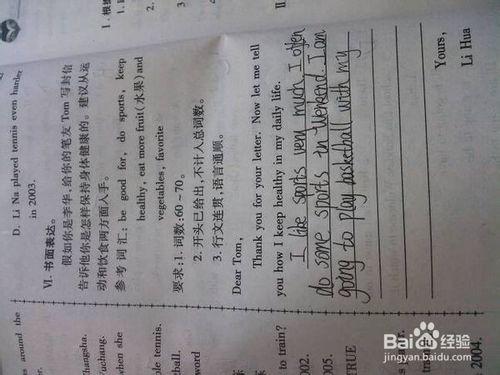 D. Li Na played tennis even harder
in 2003.
VI. 书面表达。
假如你是李华,给你的笔友 Tom 写封信
告诉他你是怎样保持身体健康的。建议从运
动和饮食两方面入手。
参考词汇: be good for, do sports, keep
healthy, eat more fruit(水果) and
vegetables, favorite
要求:1. 词数:60~70。
2. 开头已给出,不计入总词数。
3. 行文连贯,语言通顺。
Dear Tom,
Thank you for your letter. Now let me tell
you how I keep healthy in my daily life.
I like sports very much, I often
do some sports in Weekend I am
going to play basketball with my
Yours,
Li Hua
around the
when she
ble tennis.
word
to train?
2002.
2005.
TRUE
2004.
1. 根
2.
II
Baidu 经验
jingyan.baidu.com